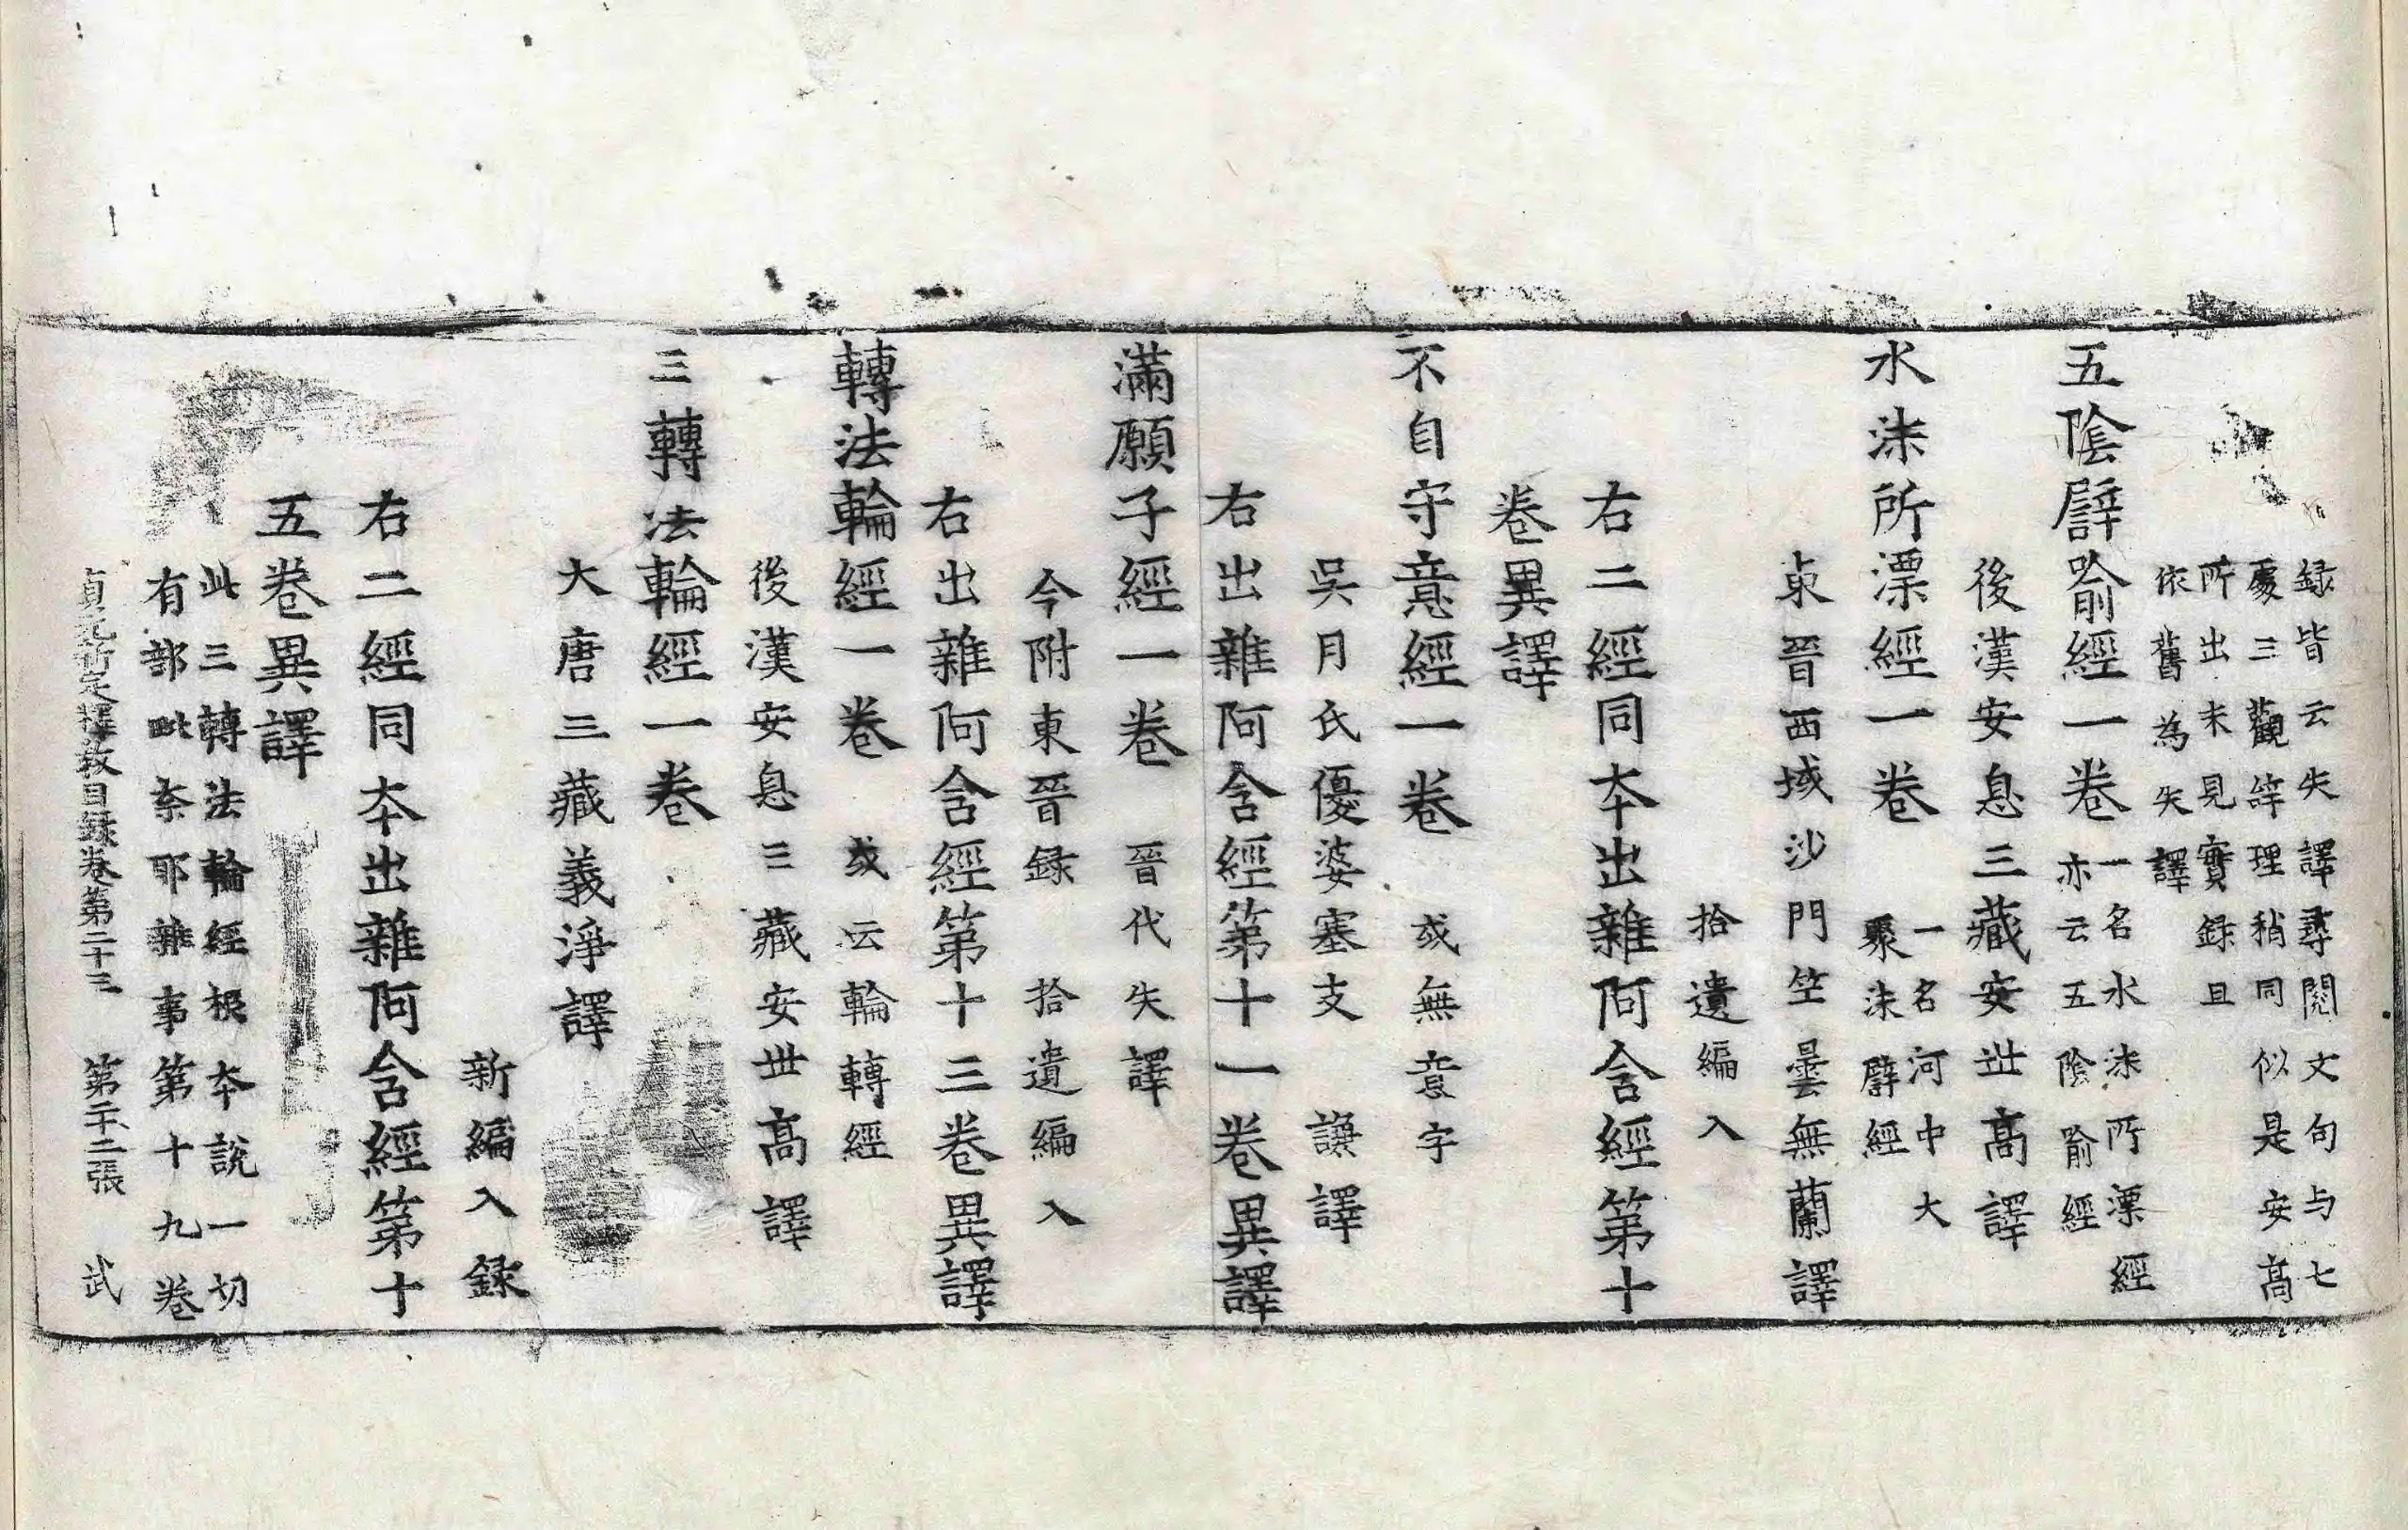 録皆云失譯尋閱文句与七
處三觀等理稍同似是安髙
所出未見實録且
依舊為失譯
五陰譬喻經一卷
一名水沫所漂經
亦云五陰喻經
後漢安息三藏安世髙譯
水沫所漂經一卷
一名河中大
聚沫譬經
東晉西域沙門竺曇無蘭譯
拾遺編入
右二經同夲出雜阿含經第十
卷異譯
不自守意經一卷
或無意字
吳月氏優婆塞支謙譯
右出雜阿含經第十一卷異譯
滿願子經一卷
晉代失譯
今附東晉録 拾遺編入
右出雜阿含經第十三卷異譯
轉法輪經一卷
或云輪轉經
後漢安息三藏安世髙譯
三轉法輪經一卷
大唐三藏義淨譯
新編入録
右二經同夲出雜阿含經第十
五卷異譯
此三轉法輪經根夲說一切
有部毗奈耶雜事第十九卷
貞元新定釋教目録卷第二十三 第二十二張 武